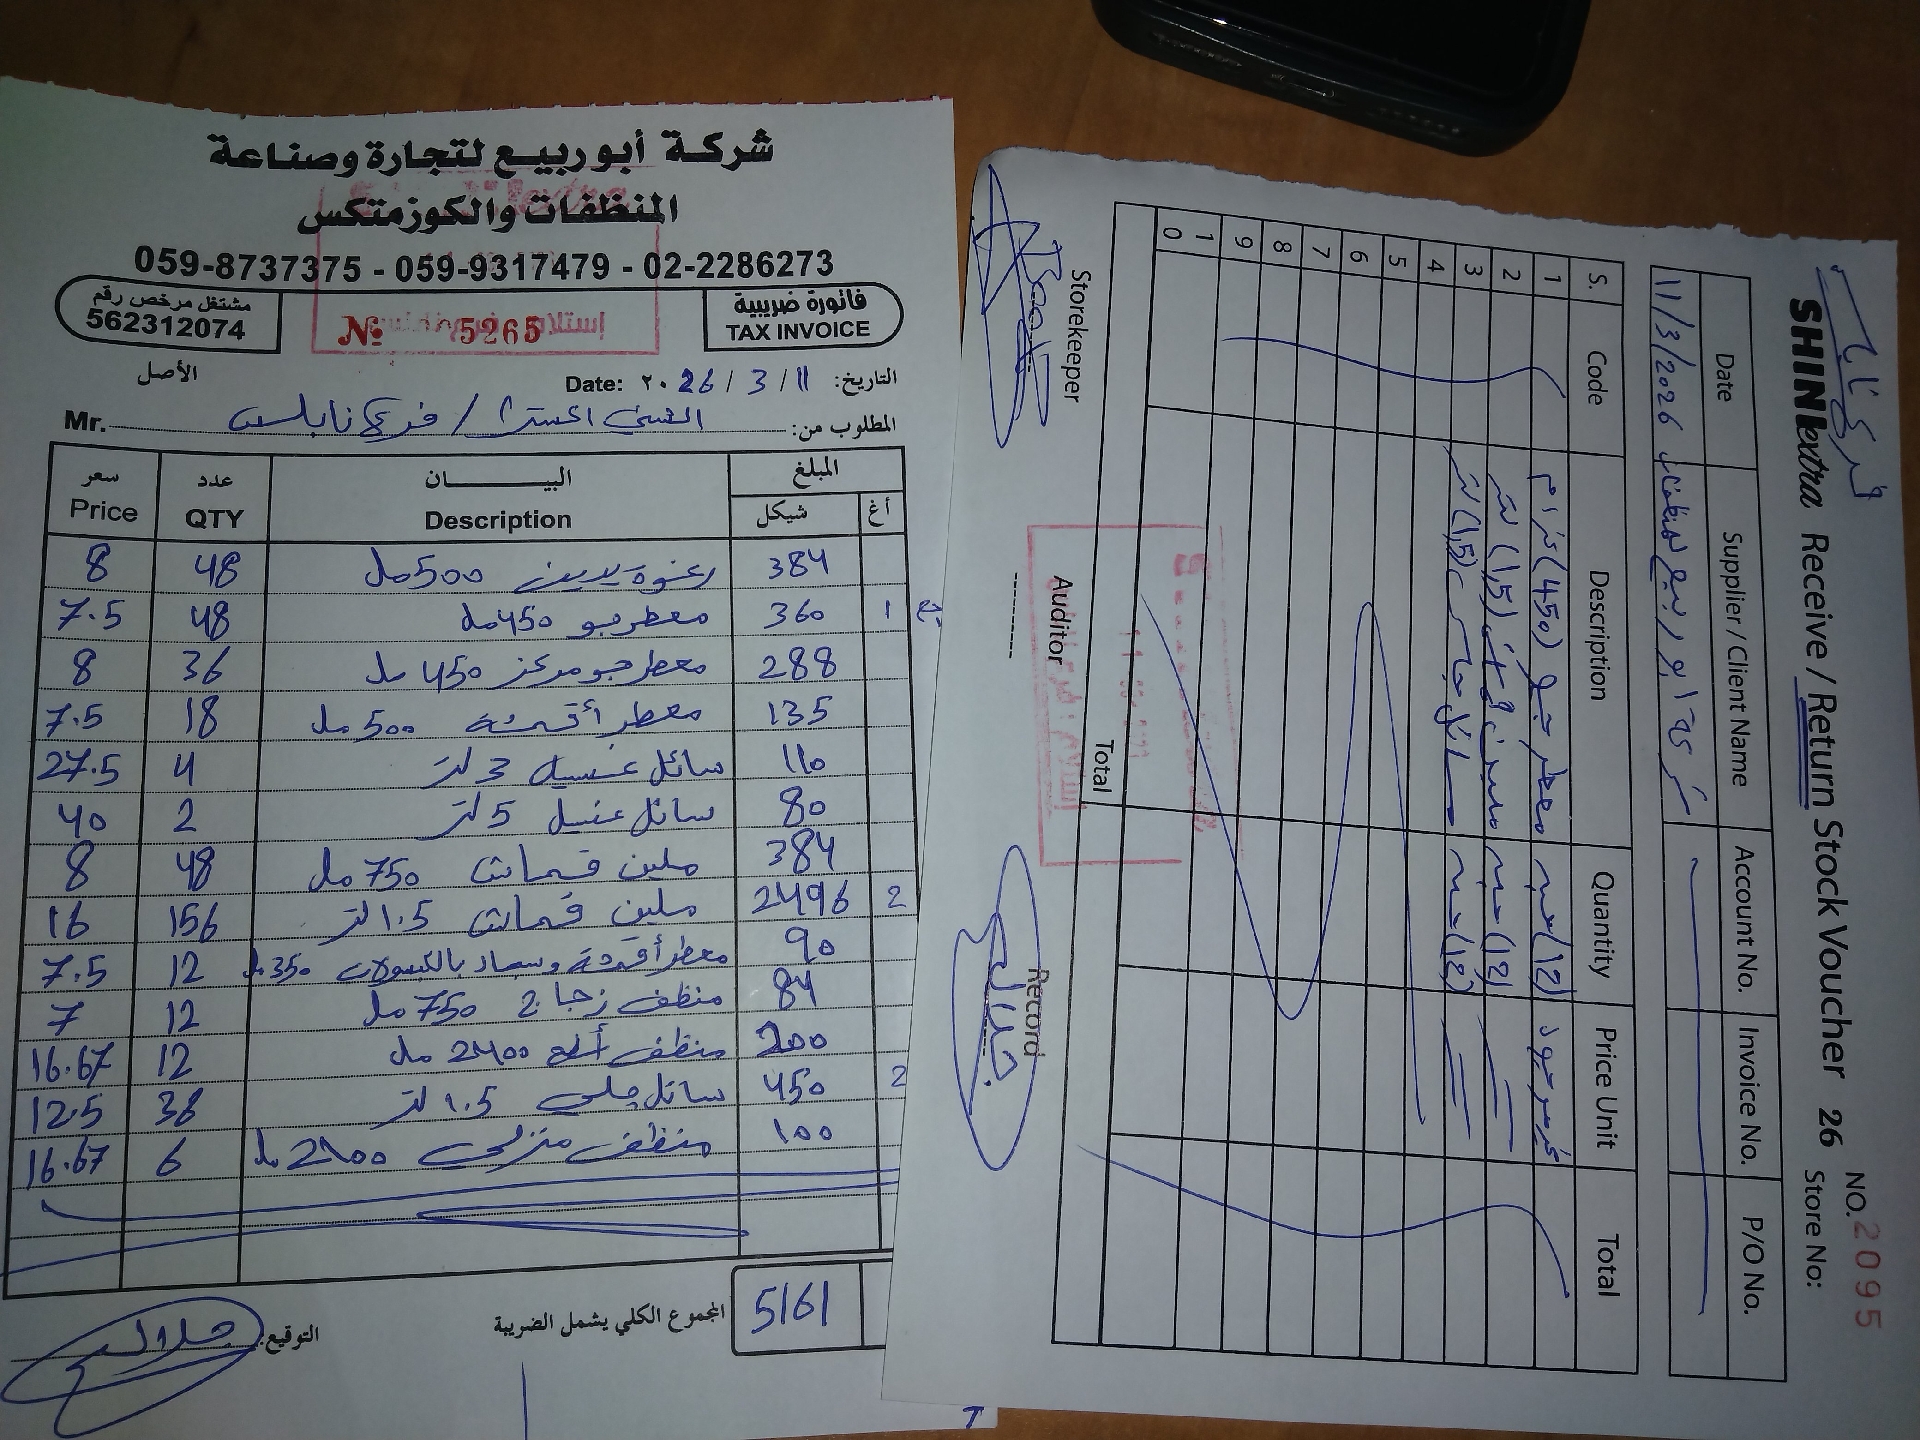 شركة أبو ربيع لتجارة وصناعة
المنظفات والكوزمتكس
059-8737375 - 059-9317479 - 02-2286273
مشتغل مرخص رقم
562312074
№ 5265
فاتورة ضريبية
TAX INVOICE
الأصل
التاريخ: 11 / 3 / ٢٠26 Date:
المطلوب من: / فرع نابلس Mr.
المبلغ البيـــــان عدد سعر
أغ شيكل Description QTY Price
384 500 مل 48 8
1 360 معطر جو 450 مل 48 7.5
288 معطر جو مركز 450 مل 36 8
135 معطر أقمشة 500 مل 18 7.5
110 سائل غسيل 3 لتر 4 27.5
80 سائل غسيل 5 لتر 2 40
384 ملين قماش 750 مل 48 8
2 2496 ملين قماش 1.5 لتر 156 16
90 معطر أقمشة 350 12 7.5
84 منظف زجاج 750 مل 12 7
200 منظف مل 12 16.67
2 450 سائل جلي 1.5 لتر 12.5
100 منظف منزلي 6 16.67
المجموع الكلي يشمل الضريبة 5161
التوقيع:
فرع نابلس
SHINEextra Receive / Return Stock Voucher 26
NO. 2095
Store No:
Date Supplier / Client Name Account No. Invoice No. P/O No.
11/3/2026 شركة ابو ربيع لمنظفات
S. Code Description Quantity Price Unit Total
1 معطر جو (450) غرام (12)
2 ملين قماش (1,5) لتر (12)
3 سائل جلي (1,5) لتر (12)
4
5
6
7
8
9
1
0
Total
Storekeeper Auditor Record